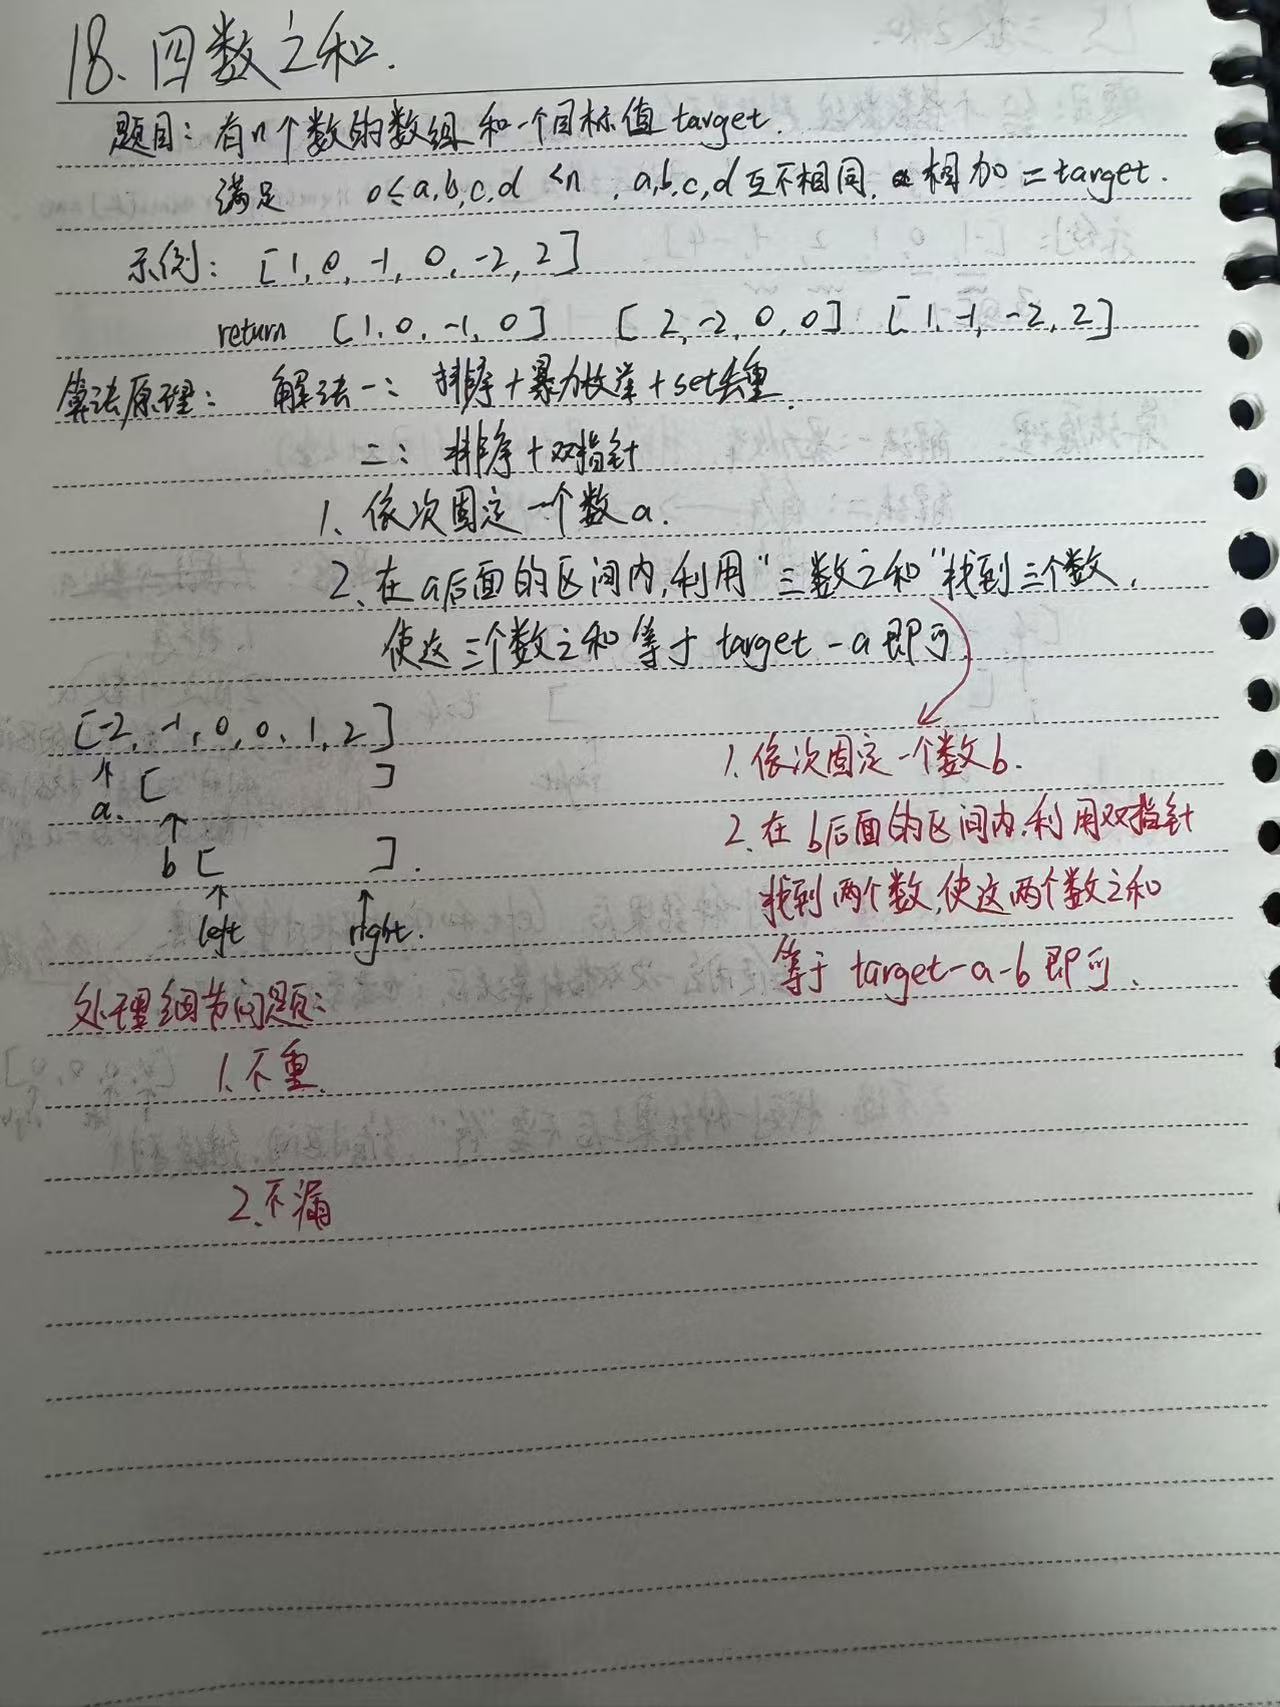 18、四数之和.
题目：有n个数的数组和一个目标值 target.
满足 0≤a,b,c,d <n , a,b,c,d 互不相同, 相加 = target.
示例： [1, 0, -1, 0, -2, 2]
return [1, 0, -1, 0] [2, -2, 0, 0] [1, -1, -2, 2]
算法原理： 解法一： 排序+暴力枚举+set去重.
二： 排序+双指针
1、依次固定一个数a.
2、在a后面的区间内,利用“三数之和”找到三个数,
使这三个数之和等于 target - a 即可.
[-2, -1, 0, 0, 1, 2]
a. [ ]
b [ ].
left right.
1. 依次固定一个数b.
2. 在b后面的区间内,利用双指针
找到两个数,使这两个数之和
等于 target-a-b 即可.
处理细节问题：
1、不重.
2、不漏